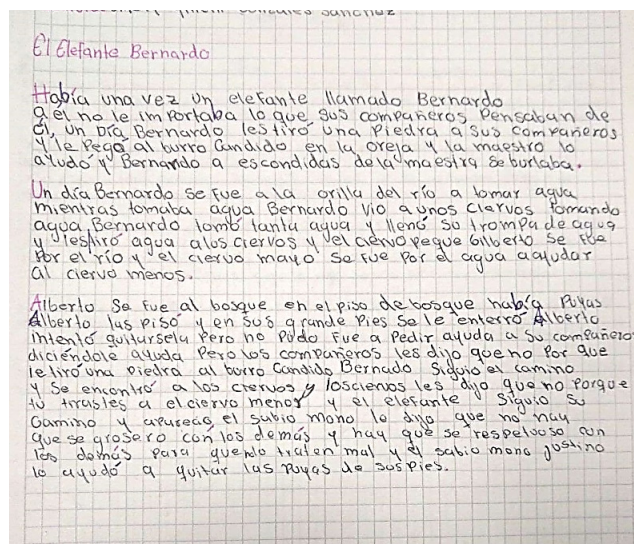 El Elefante Bernardo
Había una vez un elefante llamado Bernardo
a el no le importaba lo que sus compañeros Pensaban de
él, un Día Bernardo les tiró una Piedra a sus compañeros
y le Pegó al burro Candido en la oreja y la maestro lo
ayudó y Bernando a escondidas de la maestra se burlaba.
Un día Bernardo se fue a la orilla del río a tomar agua
mientras tomaba agua Bernardo vio a unos ciervos tomando
agua Bernardo tomó tanta agua y llenó su trompa de agua
y les tiró agua a los ciervos y el ciervo peque Gilberto se fue
Por el río y el ciervo mayo se fue Por el agua a ayudar
al ciervo menos.
Alberto Se fue al bosque en el piso de bosque había Puyas
Alberto las piso y en sus grande Pies Se le enterró Alberto
intentó quitarsela Pero no Pudo fue a Pedir ayuda a su compañero
diciéndole ayuda Pero los compañeros les dijo que no Por que
le tiró una Piedra al burro Candido Bernado Siguio el camino
y Se encontró a los ciervos y los ciervos les dijo que no porque
tú trastes a el ciervo menor y el elefante Siguio Su
Camino y el sabio mono le dijo que no hay
que se grosero con los demás y hay que se respetuoso con
los demás para que no lo traten mal y el sabio mono Justino
lo ayudó a quitar las Puyas de sus pies.